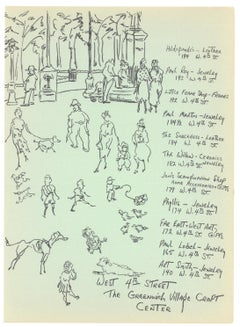 Paul Roy - Jewelry
192 W. 4th St
Little Frame Shop - Frames
192 W. 4th St
Paul Martin - Jewelry
189½ W. 4th St
The Sorcerers - Leather
184 W. 4th St
The Willow - Ceramics
182 W. 4th St Jewelry
Home Accessories - Gifts
179 W. 4th St
Phyllis - Jewelry
174 W. 4th St
Far East & West Arts,
172 W. 4th St Gifts
Paul Lobel - Jewelry
165 W. 4th St
Art Smith - Jewelry
140 W. 4th St
West 4th Street
The Greenwich Village Craft
Center